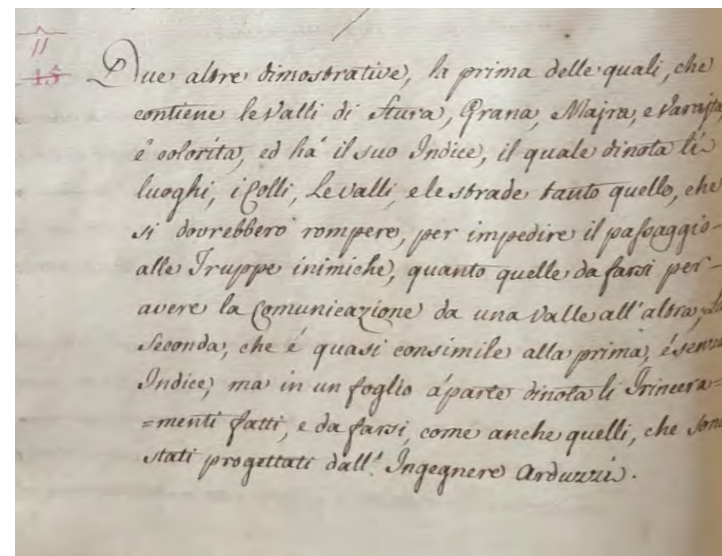 11
15
Due altre dimostrative, la prima delle quali, che
contiene le Valli di Stura, Grana, Majra, e Varajta,
é colorita, ed ha' il suo Indice, il quale dinota li
luoghi, i Colli, Le valli, e le strade tanto quello, che
si dovrebbero rompere, per impedire il passaggio-
alle Truppe inimiche, quanto quelle da farsi per-
avere la Comunicazione da una Valle all'altra; La
Seconda, che é quasi consimile alla prima, é senza
Indice, ma in un foglio á parte dinota li Trincera=
=menti fatti, e da farsi, come anche quelli, che sono
stati progettati dall'. Ingegnere Arduzzi.